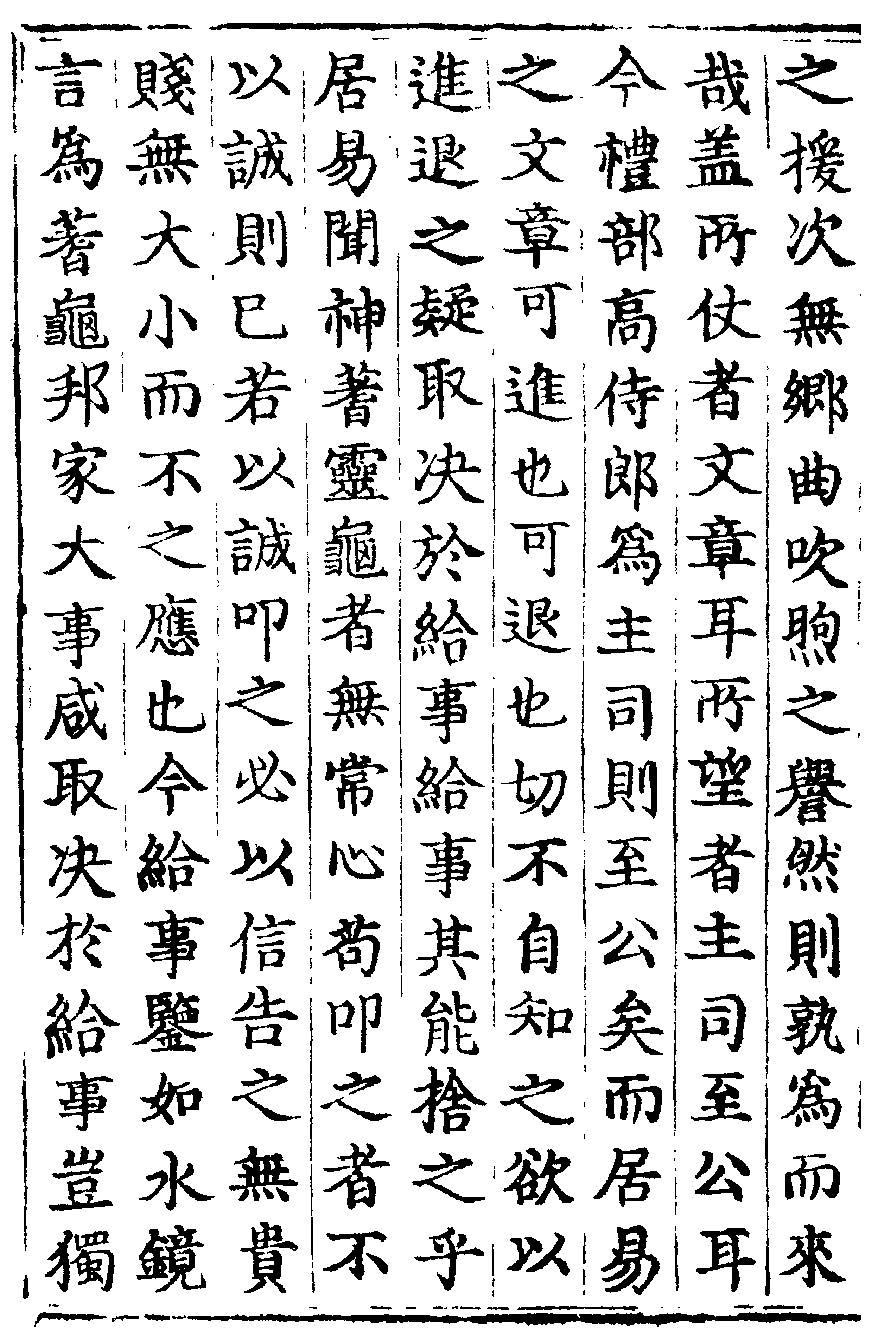 之援次無鄉曲吹煦之譽然則孰爲而來
哉盖所仗者文章耳所望者主司至公耳
今禮部高侍郎爲主司則至公矣而居易
之文章可進也可退也切不自知之欲以
進退之疑取决於給事給事其能捨之乎
居易聞神蓍靈龜者無常心苟叩之者不
以誠則已若以誠叩之必以信告之無貴
賤無大小而不之應也今給事鑒如水鏡
言爲蓍龜邦家大事咸取决於給事豈獨